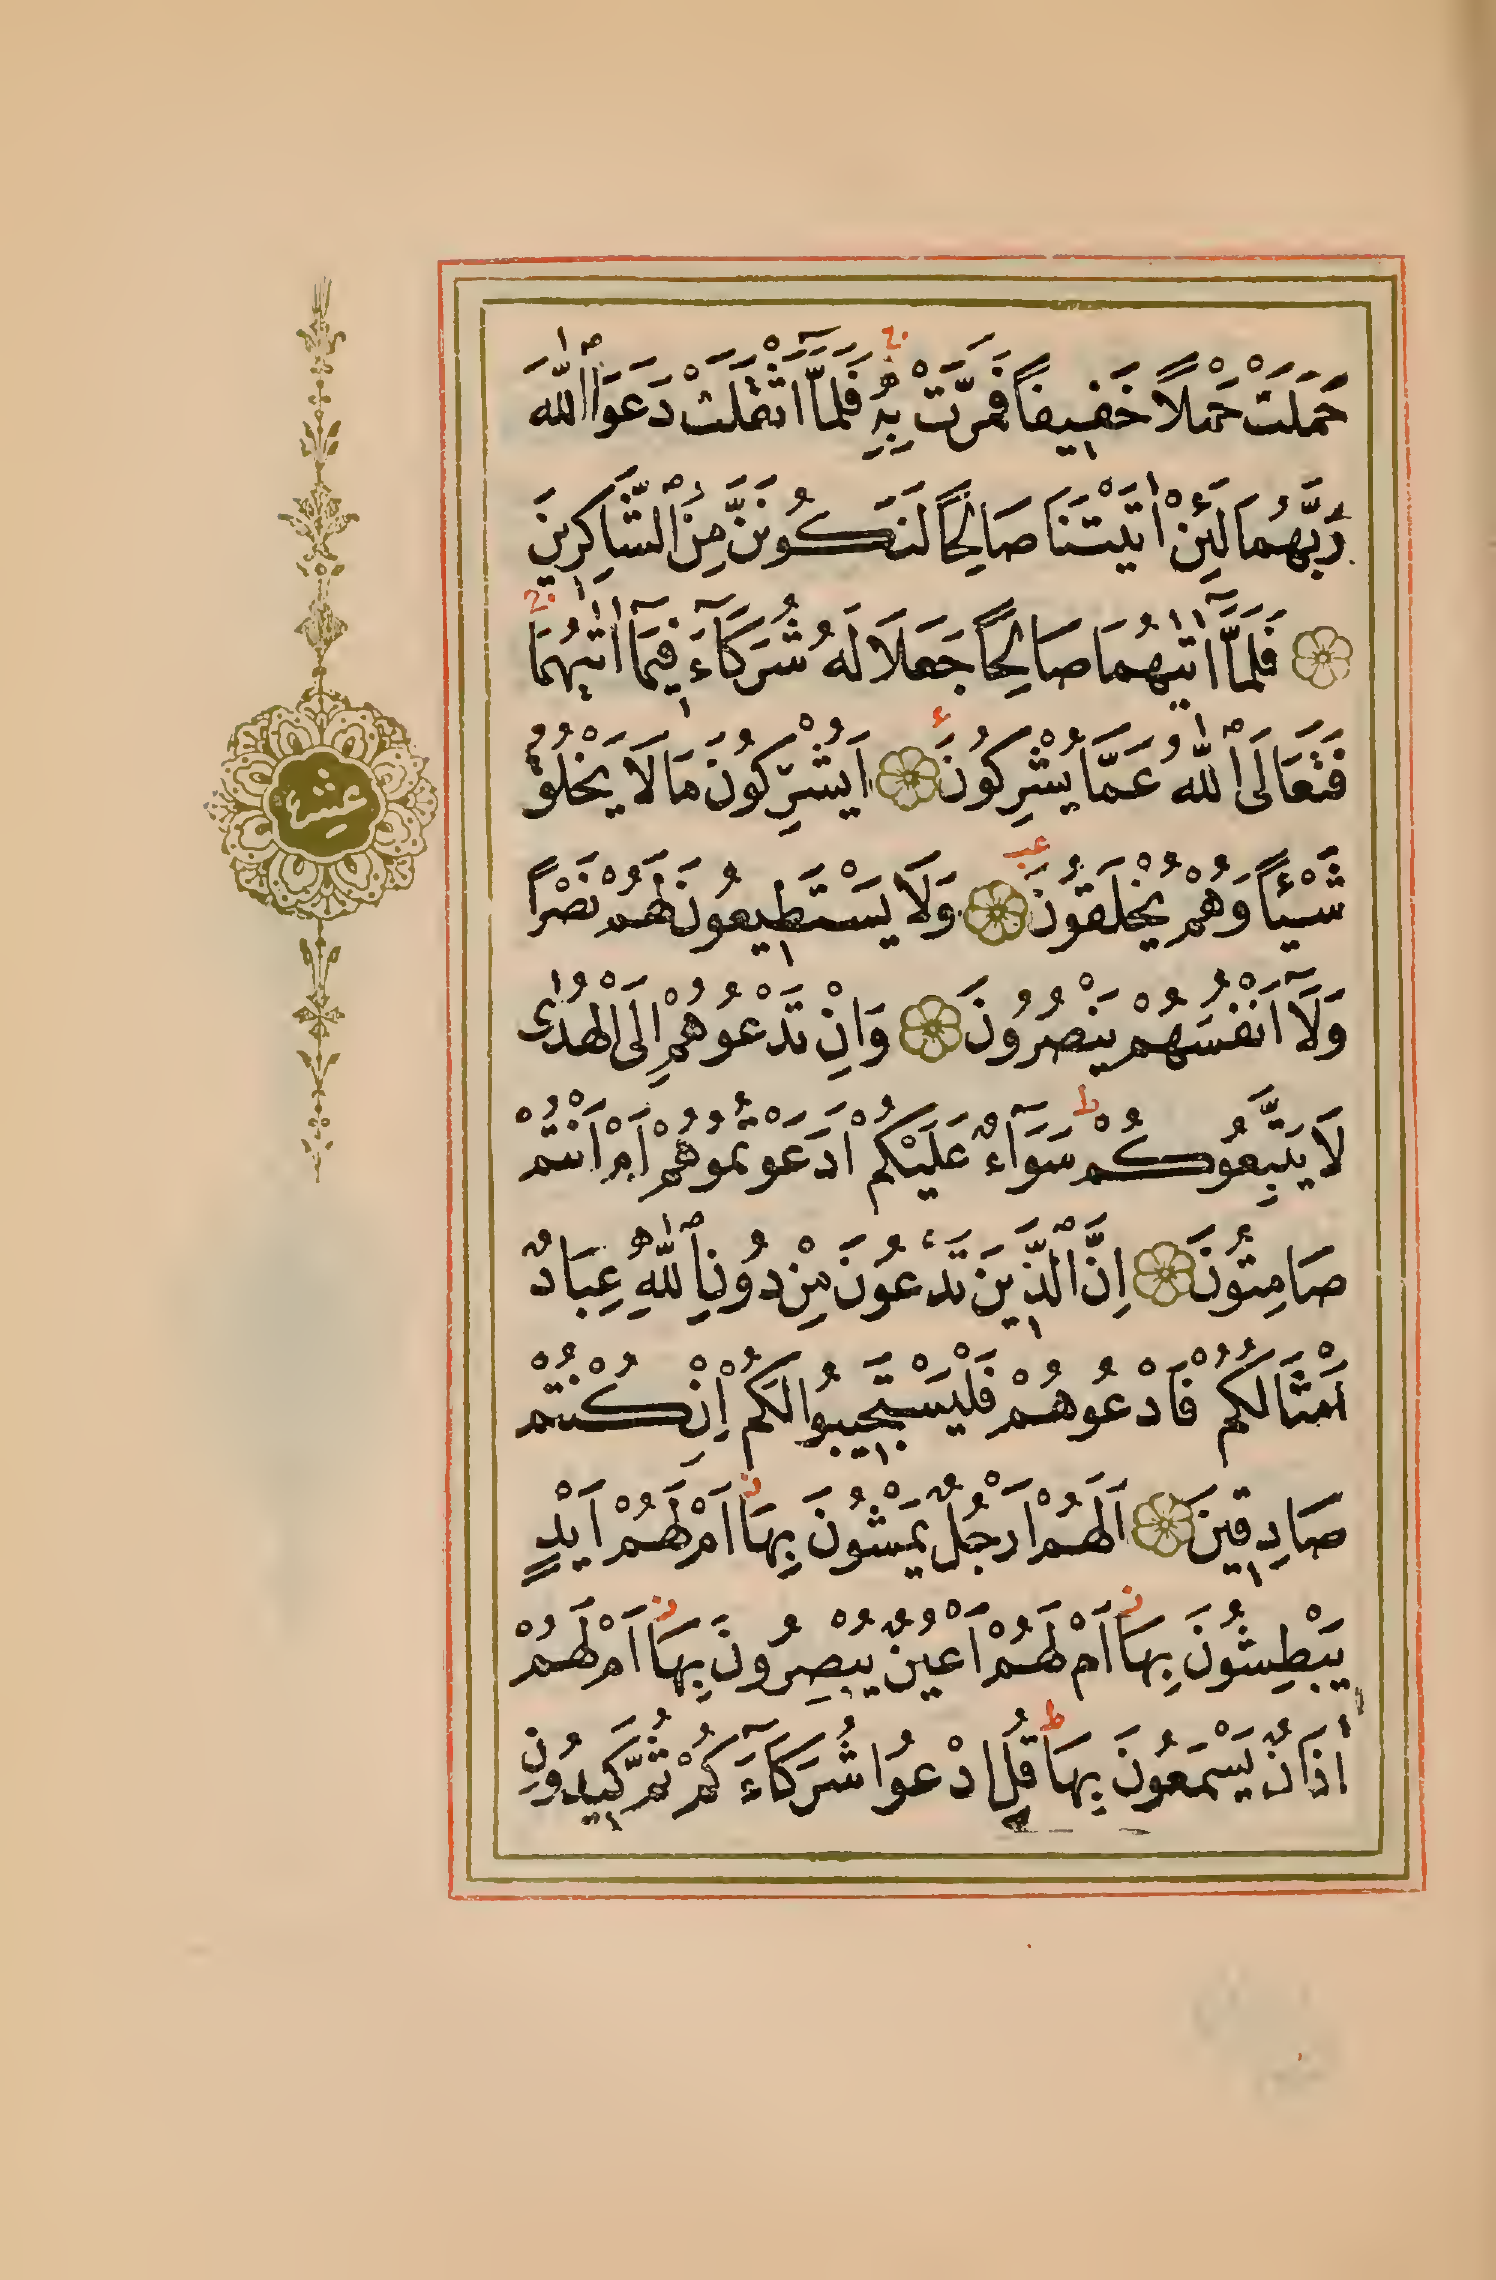 حَمَلَتْ حَمْلًا خَفِيفًا فَمَرَّتْ بِهِۚ فَلَمَّٓا اَثْقَلَتْ دَعَوَا اللّٰهَ
رَبَّهُمَا لَئِنْ اٰتَيْتَنَا صَالِحًا لَنَكُونَنَّ مِنَ الشَّاكِرِينَ
فَلَمَّٓا اٰتٰيهُمَا صَالِحًا جَعَلَا لَهُ شُرَكَٓاءَ فِيمَٓا اٰتٰيهُمَاۚ
فَتَعَالَى اللّٰهُ عَمَّا يُشْرِكُونَ اَيُشْرِكُونَ مَا لَا يَخْلُقُ
شَيْـًٔا وَهُمْ يُخْلَقُونَ وَلَا يَسْتَطِيعُونَ لَهُمْ نَصْرًا
وَلَٓا اَنْفُسَهُمْ يَنْصُرُونَ وَاِنْ تَدْعُوهُمْ اِلَى الْهُدٰى
لَا يَتَّبِعُوكُمْۜ سَوَٓاءٌ عَلَيْكُمْ اَدَعَوْتُمُوهُمْ اَمْ اَنْتُمْ
صَامِتُونَ اِنَّ الَّذِينَ تَدْعُونَ مِنْ دُونِ اللّٰهِ عِبَادٌ
اَمْثَالُكُمْ فَادْعُوهُمْ فَلْيَسْتَجِيبُوا لَكُمْ اِنْ كُنْتُمْ
صَادِقِينَ اَلَهُمْ اَرْجُلٌ يَمْشُونَ بِهَاۘ اَمْ لَهُمْ اَيْدٍ
يَبْطِشُونَ بِهَاۘ اَمْ لَهُمْ اَعْيُنٌ يُبْصِرُونَ بِهَاۘ اَمْ لَهُمْ
اٰذَانٌ يَسْمَعُونَ بِهَاۜ قُلِ ادْعُوا شُرَكَٓاءَكُمْ ثُمَّ كِيدُونِ